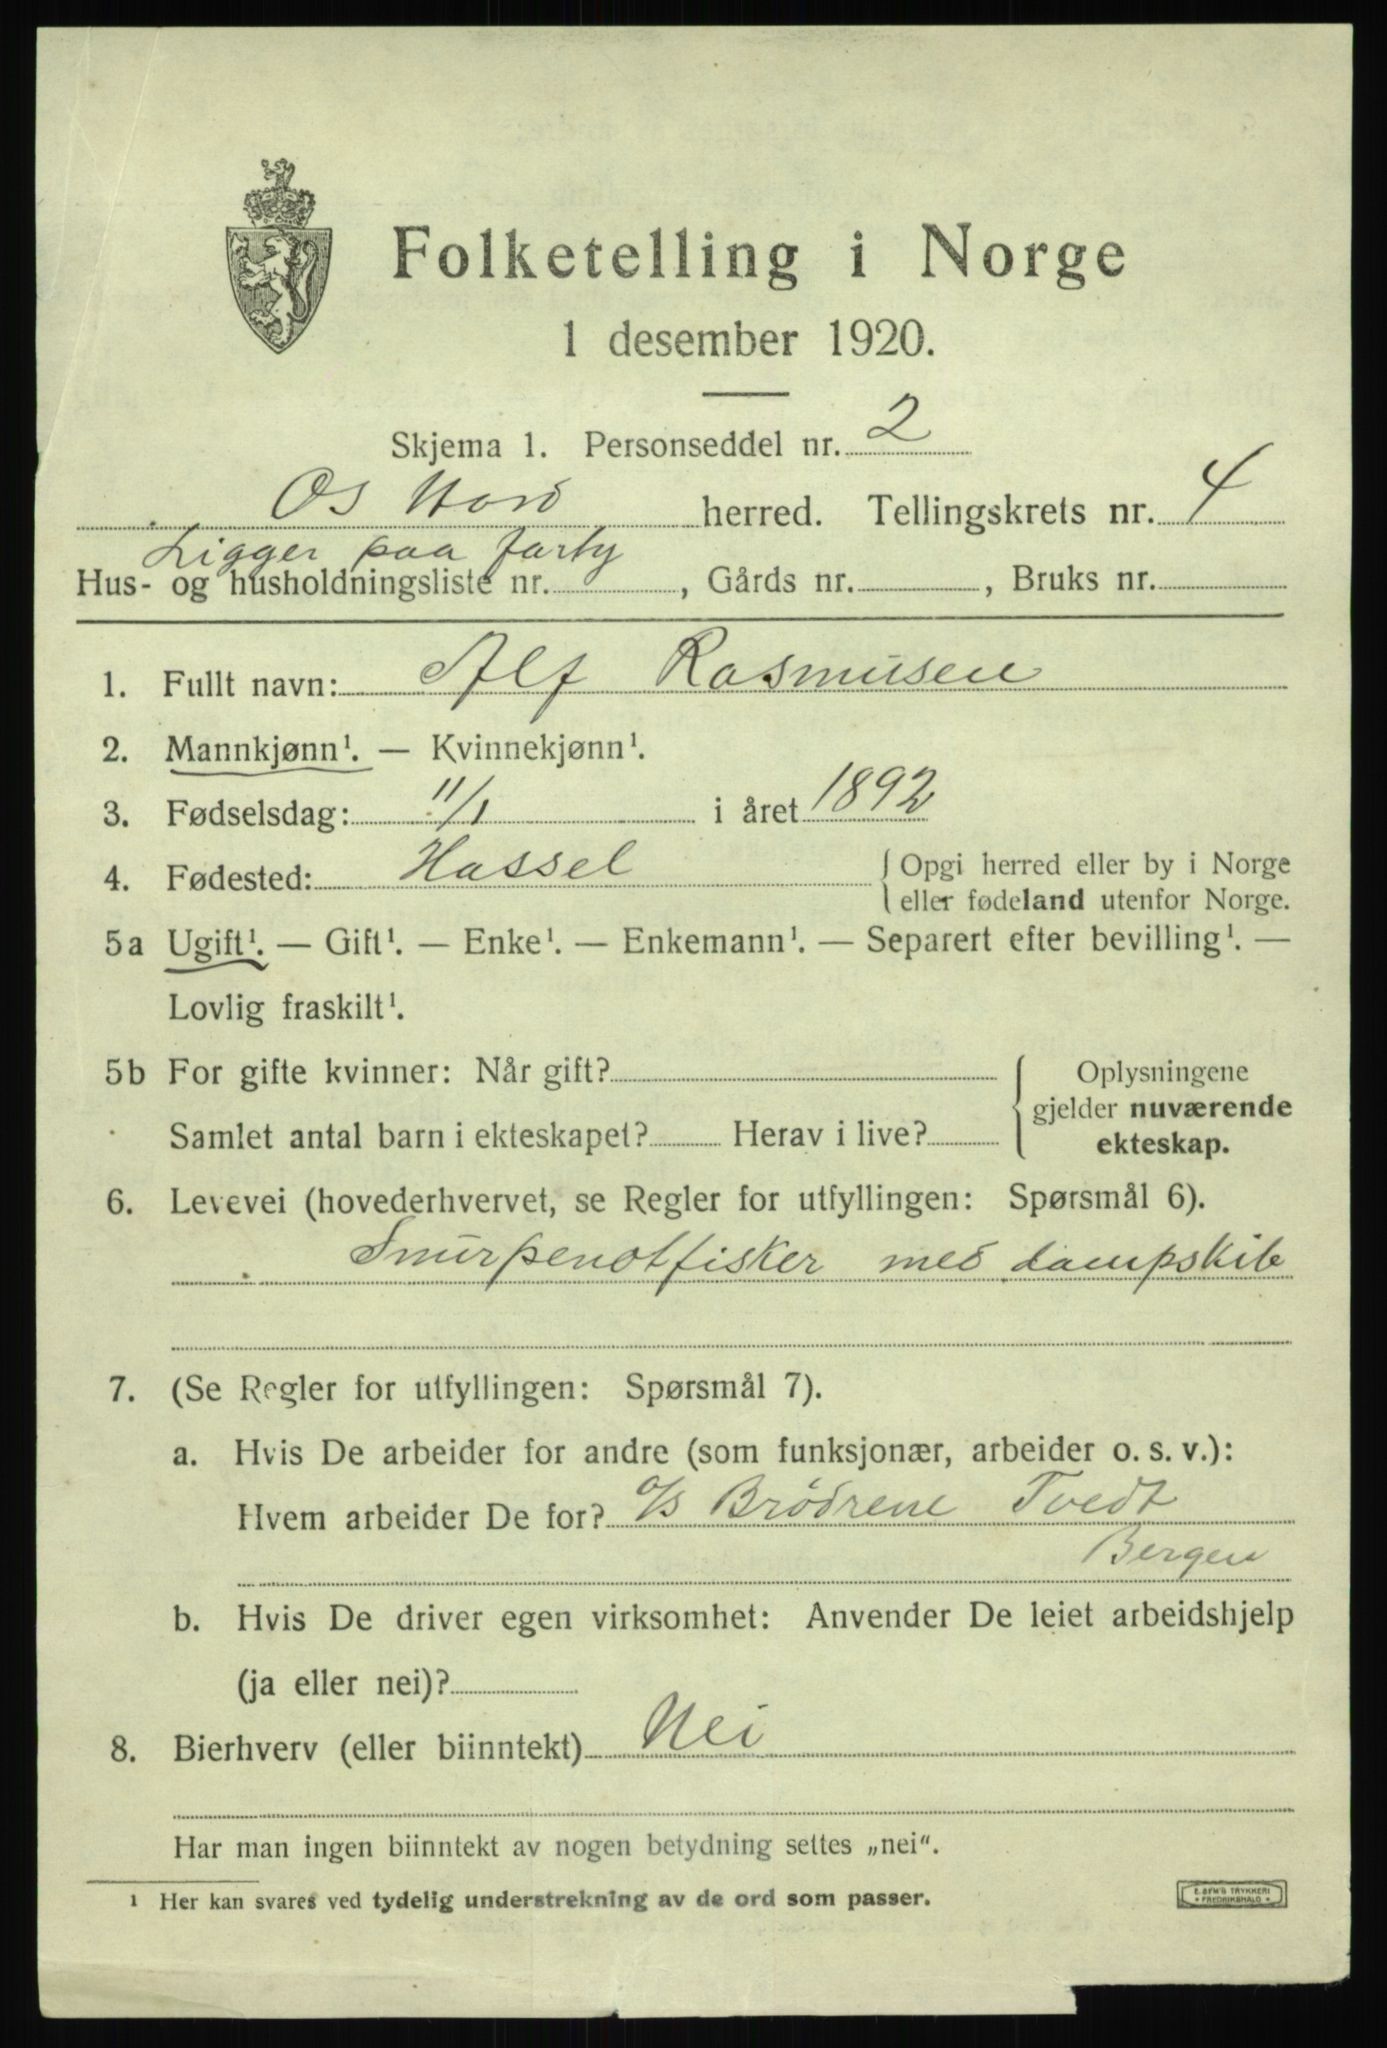 Folketelling i Norge
1 desember 1920.
Skjema 1. Personseddel nr. 2
Os Hord herred. Tellingskrets nr. 4
Ligger paa
Hus- og husholdningsliste nr. , Gårds nr. , Bruks nr.
1. Fullt navn: Alf Rasmusen
2. Mannkjønn¹. — Kvinnekjønn¹.
3. Fødselsdag: 11/1 i året 1892
4. Fødested: Hassel { Opgi herred eller by i Norge
eller fødeland utenfor Norge.
5a Ugift¹. — Gift¹. — Enke¹. — Enkemann¹. — Separert efter bevilling¹. —
Lovlig fraskilt¹.
5b For gifte kvinner: Når gift? { Oplysningene
gjelder nuværende
Samlet antal barn i ekteskapet? Herav i live? ekteskap.
6. Levevei (hovederhvervet, se Regler for utfyllingen: Spørsmål 6).
Snurpenotfisker med dampskib
7. (Se Regler for utfyllingen: Spørsmål 7).
a. Hvis De arbeider for andre (som funksjonær, arbeider o. s. v.):
Hvem arbeider De for? a/s Brödrene Tvedt
Bergen
b. Hvis De driver egen virksomhet: Anvender De leiet arbeidshjelp
(ja eller nei)?
8. Bierhverv (eller biinntekt) Nei
Har man ingen biinntekt av nogen betydning settes „nei“.
¹ Her kan svares ved tydelig understrekning av de ord som passer.